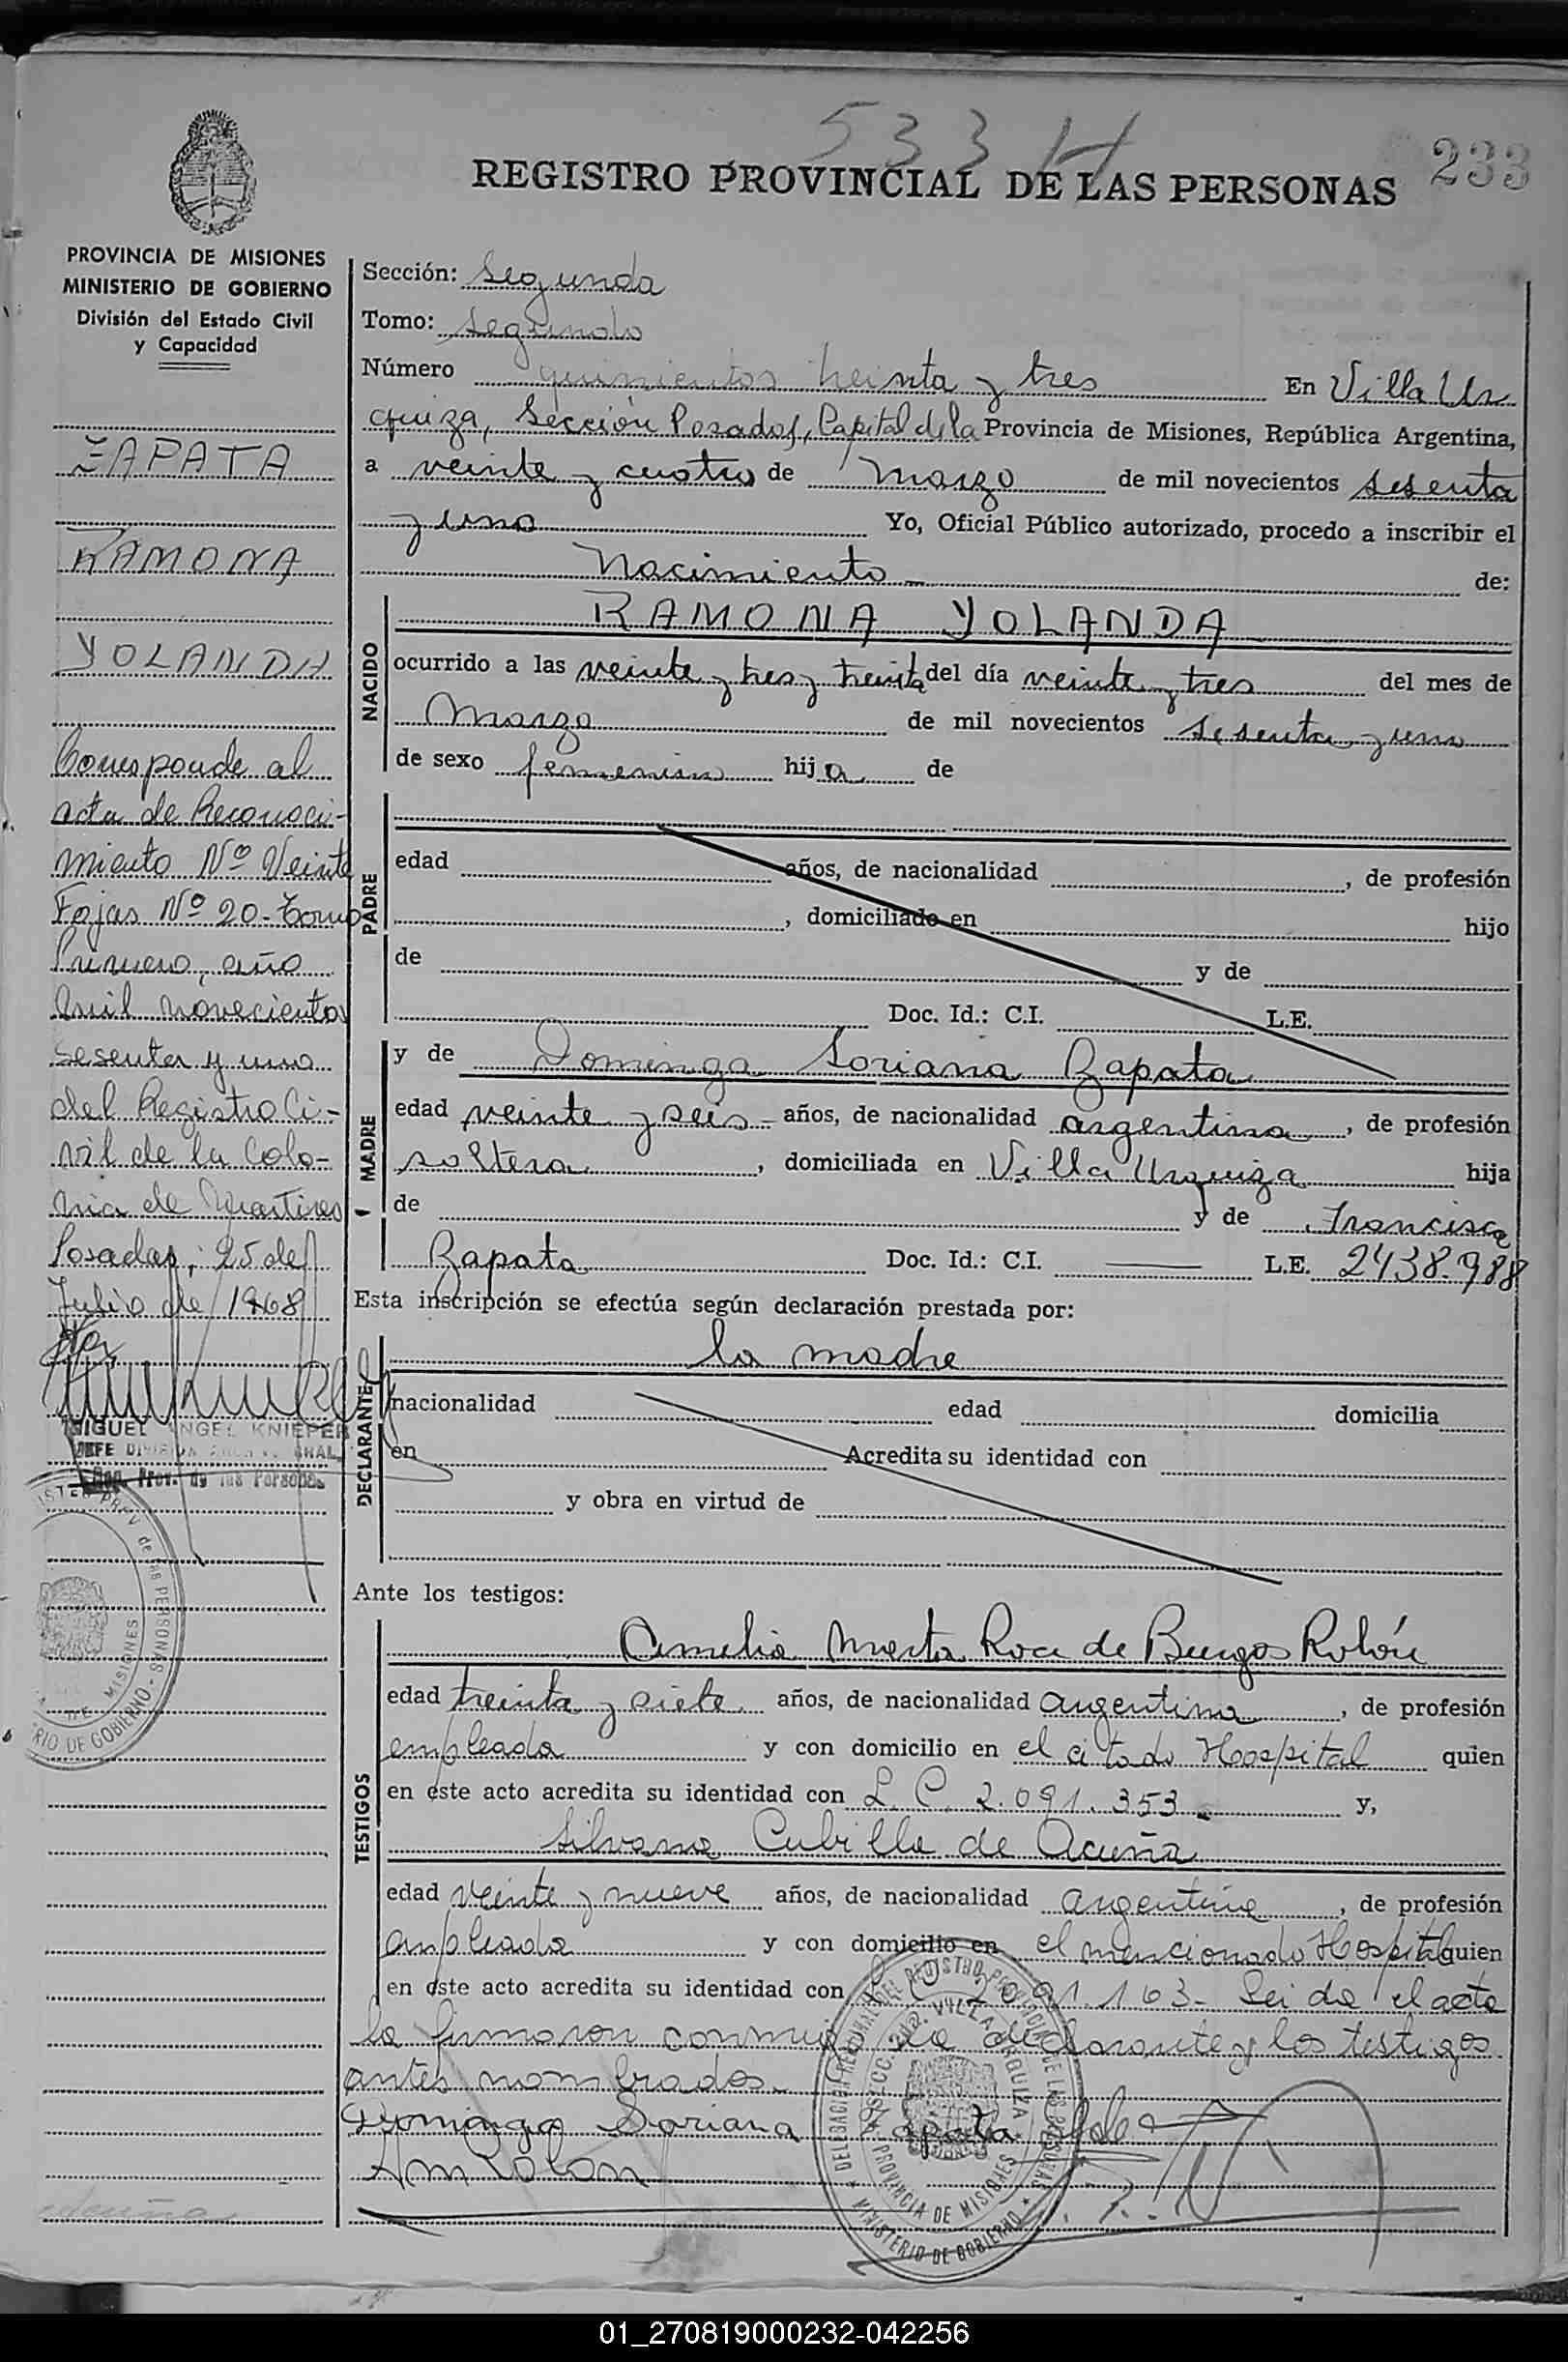 533 H
233
REGISTRO PROVINCIAL DE LAS PERSONAS
PROVINCIA DE MISIONES
MINISTERIO DE GOBIERNO
División del Estado Civil
y Capacidad
ZAPATA
RAMONA
YOLANDA
Corresponde al
acta de Reconoci-
miento Nº Veinte
Fojas Nº 20-Tomo
Primero, año
mil novecientos
sesenta y uno
del Registro Ci-
vil de la Colo-
nia de Martires
Posadas, 25 de
Julio de 1968
MIGUEL ANGEL KNIEPER
JEFE DIVISION
Reg. Prov. de las Personas
Sección: Segunda
Tomo: Segundo
Número quinientos treinta y tres En Villa Ur
quiza, Sección Posadas, Capital de la Provincia de Misiones, República Argentina,
a veinte y cuatro de Marzo de mil novecientos sesenta
y uno Yo, Oficial Público autorizado, procedo a inscribir el
Nacimiento de:
NACIDO
RAMONA YOLANDA
ocurrido a las veinte y tres y treinta del día veinte y tres del mes de
Marzo de mil novecientos sesenta y uno
de sexo femenino hija de
PADRE
edad años, de nacionalidad , de profesión
, domiciliado en hijo
de y de
Doc. Id.: C.I. L.E.
MADRE
y de Dominga Soriana Zapata
edad veinte y seis - años, de nacionalidad argentina, de profesión
soltera, domiciliada en Villa Urquiza hija
de y de Francisca
Zapata Doc. Id.: C.I. — L.E. 2438.988
Esta inscripción se efectúa según declaración prestada por:
DECLARANTE
la madre
nacionalidad edad domicilia
en Acredita su identidad con
y obra en virtud de
Ante los testigos:
TESTIGOS
Amelia Mirta Roa de Burgos Rolón
edad treinta y siete años, de nacionalidad argentina, de profesión
empleada y con domicilio en el citado Hospital quien
en este acto acredita su identidad con L.C. 2.091.353 - y,
Silvana Cubilla de Acuña
edad veinte y nueve años, de nacionalidad argentina, de profesión
empleada y con domicilio en el mencionado Hospital quien
en este acto acredita su identidad con 91.163- Leida el acta
la firmaron conmigo la declarante y los testigos
antes nombrados.
Dominga Soriana Zapata
Am Rolon
DELEGACION REGIONAL DEL REGISTRO PROVINCIAL DE LAS PERSONAS
VILLA URQUIZA
PROVINCIA DE MISIONES
MINISTERIO DE GOBIERNO
01_270819000232-042256